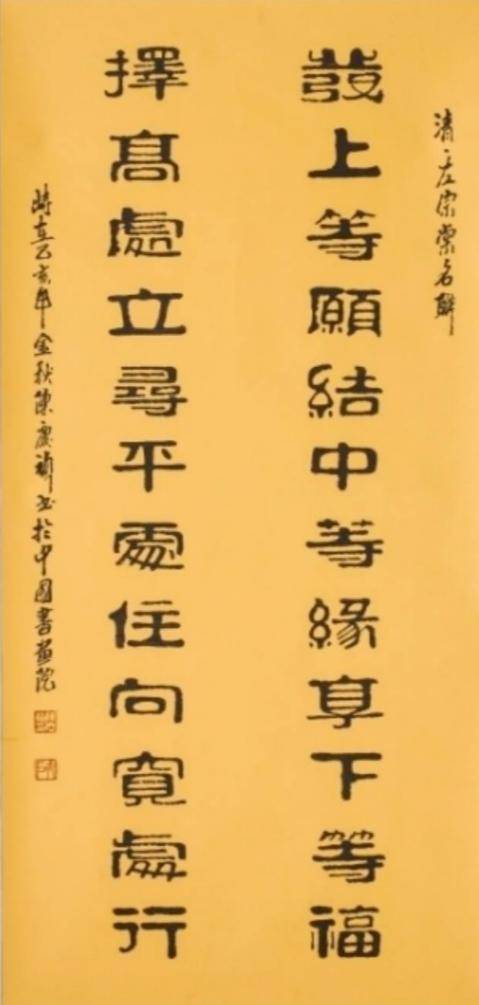 清·左宗棠名聯
發上等願結中等緣享下等福
擇髙處立尋平處住向寬處行
時在亥年金秋陳書於中國書畫院